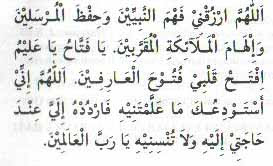 اَللّٰهُمَّ ارْزُقْنِيْ فَهْمَ النَّبِيِّيْنَ وَحِفْظَ الْمُرْسَلِيْنَ
وَإِلْهَامَ الْمَلَآئِكَةِ الْمُقَرَّبِيْنَ. يَا فَتَّاحُ يَا عَلِيْمُ
افْتَحْ قَلْبِيْ فُتُوْحَ الْعَارِفِيْنَ. اَللّٰهُمَّ إِنِّيْ
أَسْتَوْدِعُكَ مَا عَلَّمْتَنِيْهِ فَارْدُدْهُ إِلَيَّ عِنْدَ
حَاجَتِيْ إِلَيْهِ وَلَا تُنْسِنِيْهِ يَا رَبَّ الْعَالَمِيْنَ.